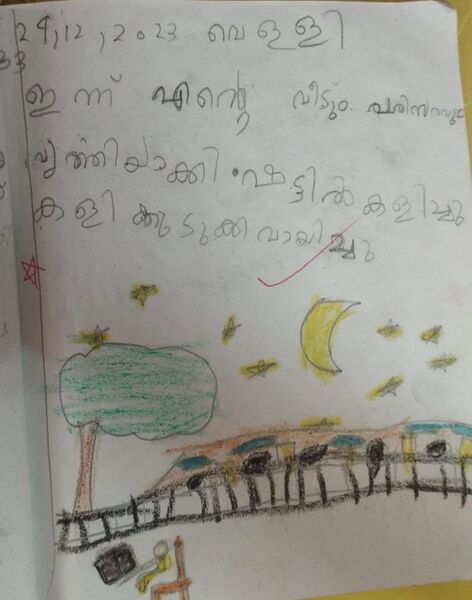 29,12,2023 വെള്ളി
ഇന്ന് എന്റെ വീടും. പരിസരവും
വൃത്തിയാക്കി. ഷട്ടിൽ കളിച്ചു
കളിക്കുടുക്ക വായിച്ചു